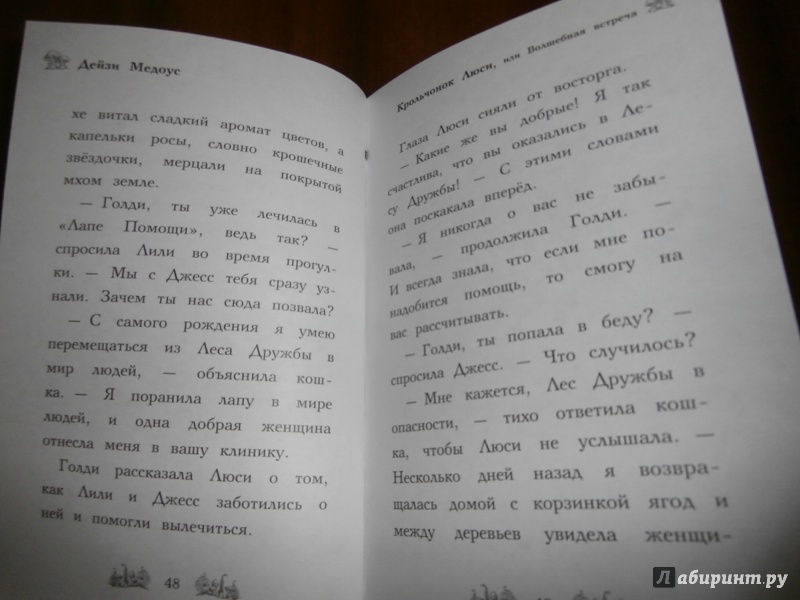 Дейзи Медоус
хе витал сладкий аромат цветов, а
капельки росы, словно крошечные
звёздочки, мерцали на покрытой
мхом земле.
— Голди, ты уже лечилась в
«Лапе Помощи», ведь так? —
спросила Лили во время прогул-
ки. — Мы с Джесс тебя сразу уз-
нали. Зачем ты нас сюда позвала?
— С самого рождения я умею
перемещаться из Леса Дружбы в
мир людей, — объяснила кош-
ка. — Я поранила лапу в мире
людей, и одна добрая женщина
отнесла меня в вашу клинику.
Голди рассказала Люси о том,
как Лили и Джесс заботились о
ней и помогли вылечиться.
48
Крольчонок Люси, или Волшебная встреча
Глаза Люси сияли от восторга.
— Какие же вы добрые! Я так
счастлива, что вы оказались в Ле-
су Дружбы! — С этими словами
она поскакала вперёд.
— Я никогда о вас не забы-
вала, — продолжила Голди. —
И всегда знала, что если мне по-
надобится помощь, то смогу на
вас рассчитывать.
— Голди, ты попала в беду? —
спросила Джесс. — Что случилось?
— Мне кажется, Лес Дружбы в
опасности, — тихо ответила кош-
ка, чтобы Люси не услышала. —
Несколько дней назад я возвра-
щалась домой с корзинкой ягод и
между деревьев увидела женщи-
Лабиринт.ру